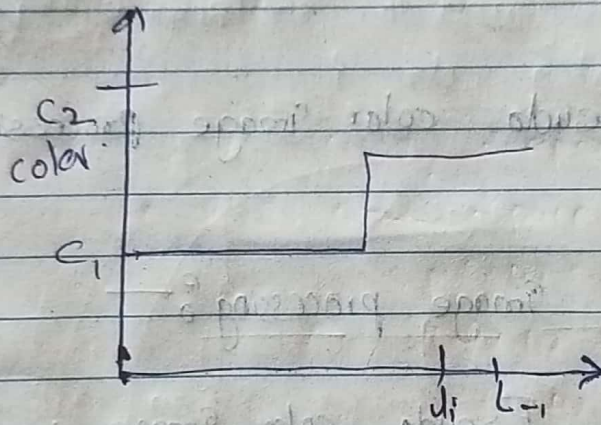 C2
color
C1
li L-1